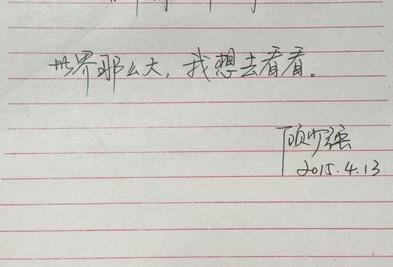 世界那么大，我想去看看。
顾少强
2015.4.13